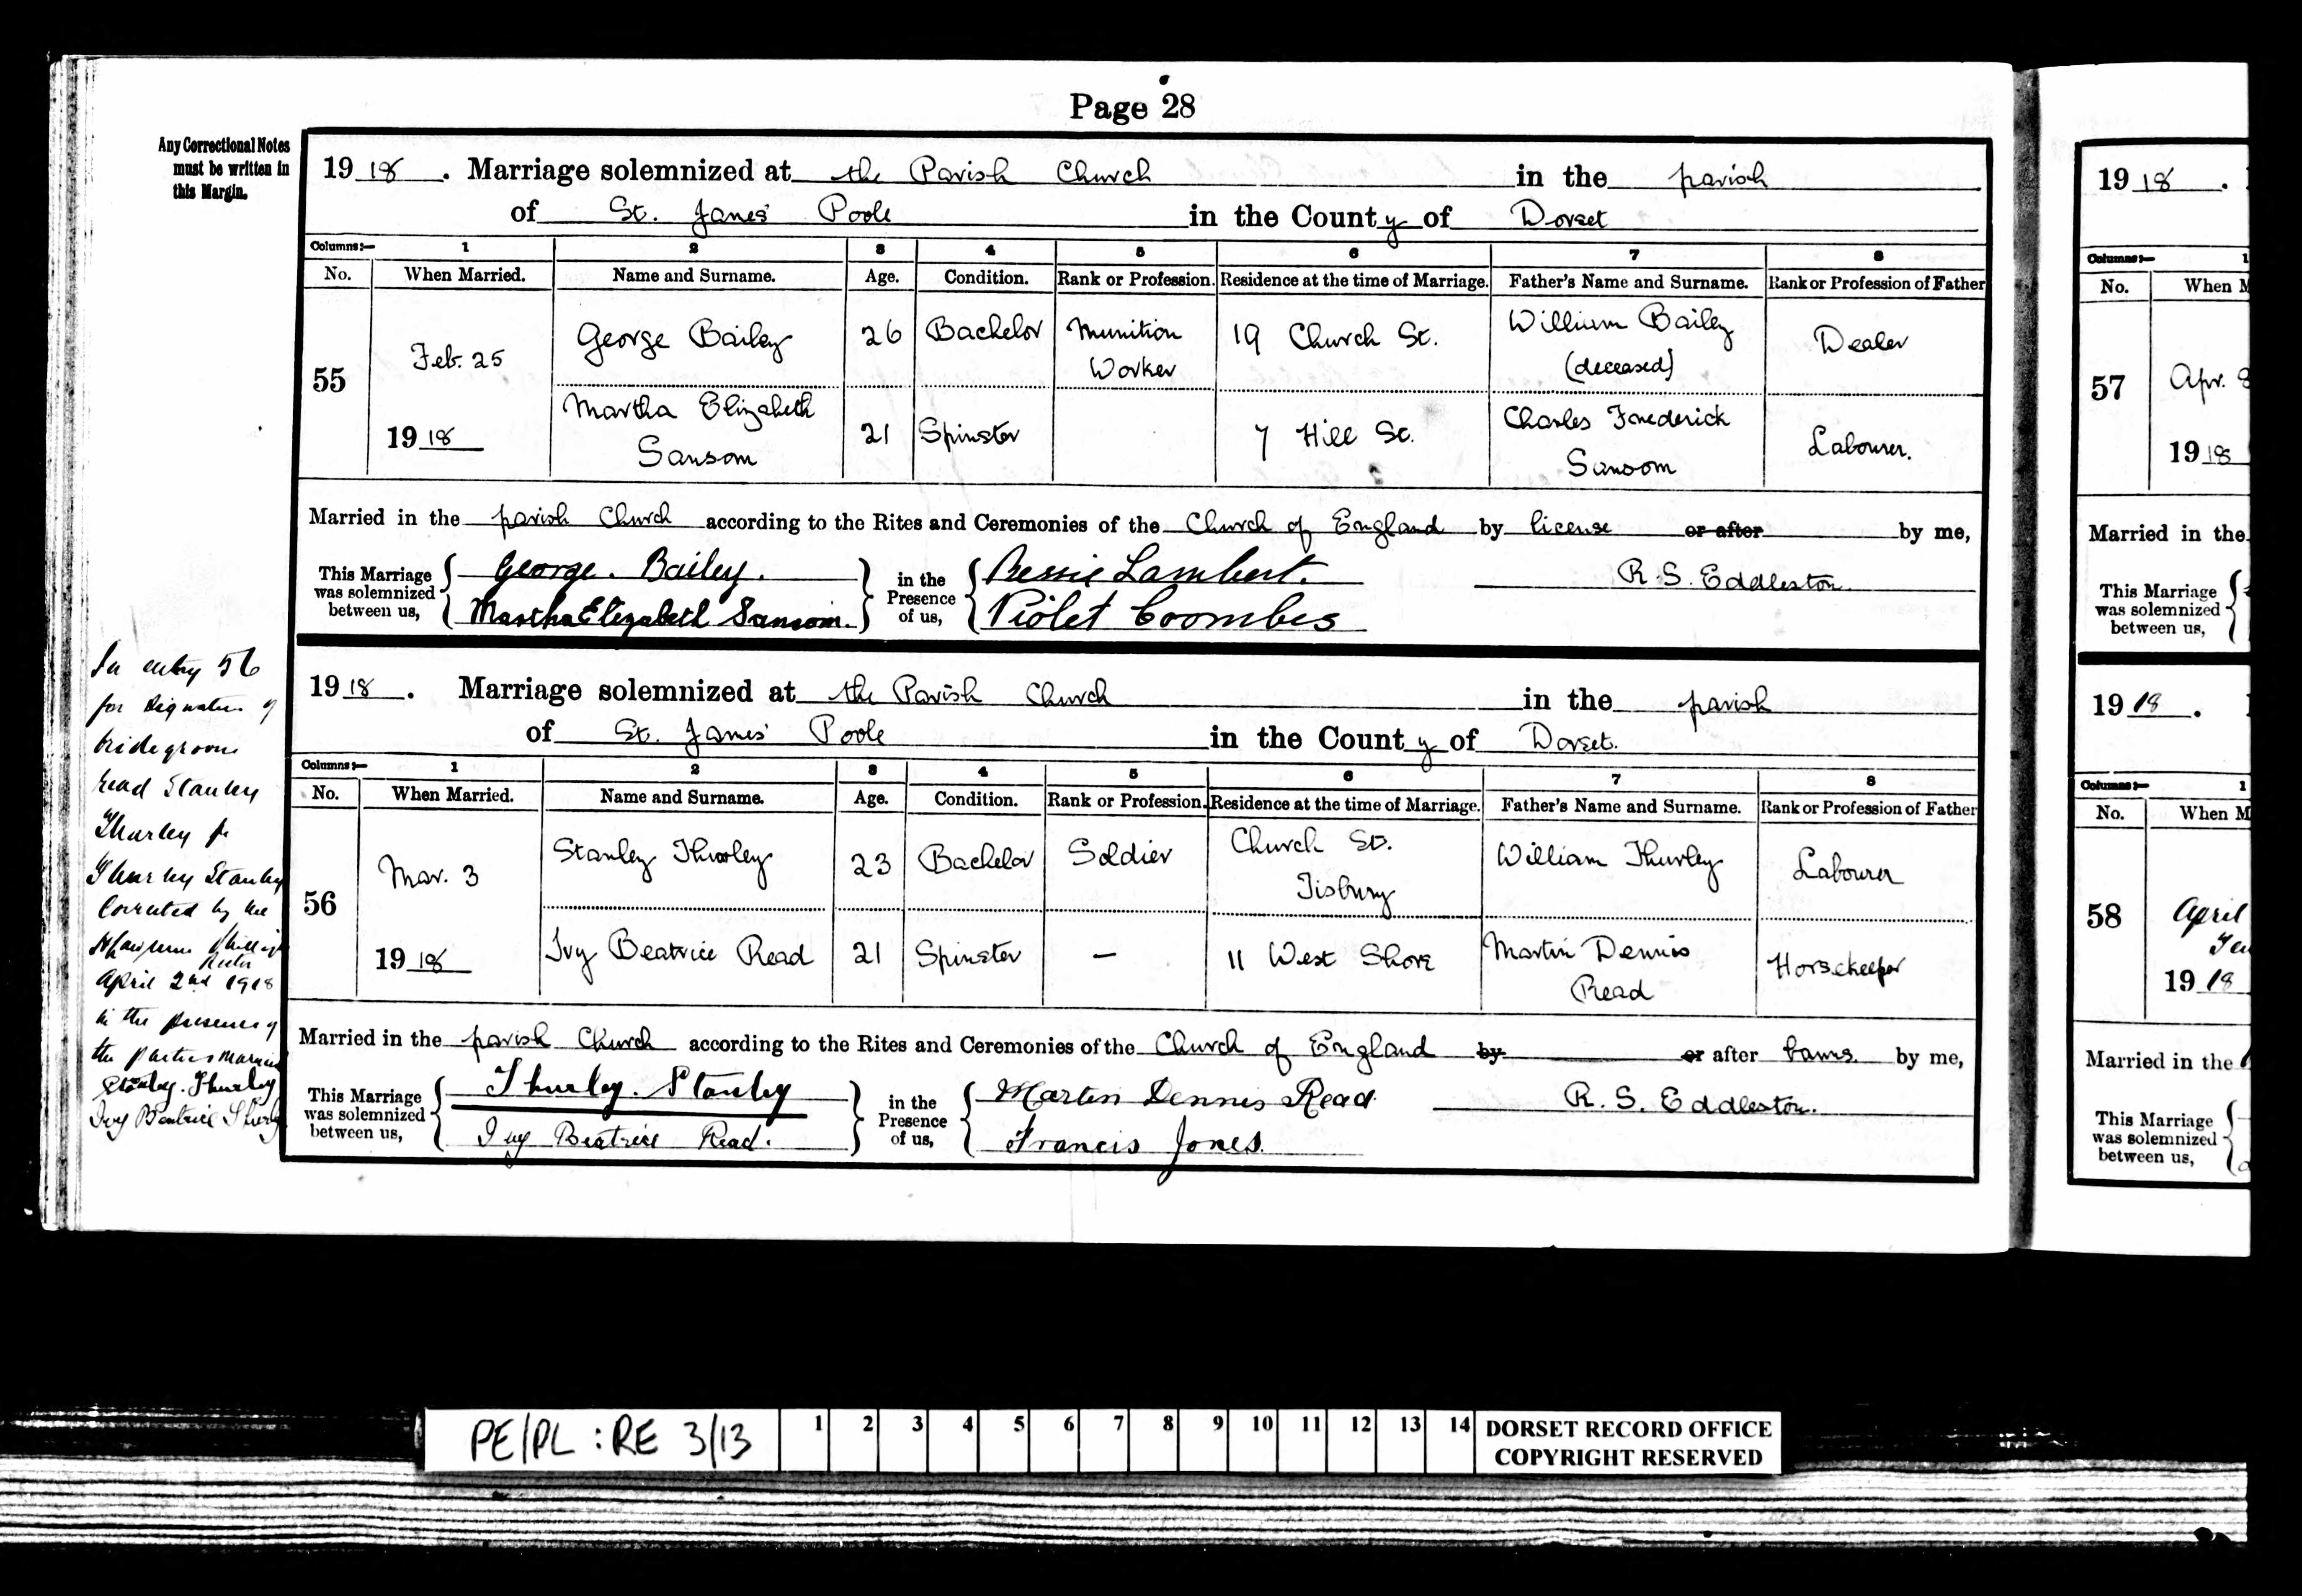 Page 28
Any Correctional Notes
must be written in
this Margin.
1918. Marriage solemnized at the Parish Church in the parish
of St. James' Poole in the County of Dorset
Columns:— 1 2 3 4 5 6 7 8
No. When Married. Name and Surname. Age. Condition. Rank or Profession. Residence at the time of Marriage. Father's Name and Surname. Rank or Profession of Father
55 Feb. 25 1918
George Bailey 26 Bachelor Munition Worker 19 Church St. William Bailey (deceased) Dealer
Martha Elizabeth Sansom 21 Spinster 7 Hill St. Charles Frederick Sansom Labourer.
Married in the parish Church according to the Rites and Ceremonies of the Church of England by license or after by me,
This Marriage was solemnized between us, George. Bailey. Martha Elizabeth Sansom. in the Presence of us, Bessie Lambert. Violet Coombes R. S. Eddleston.
1918. Marriage solemnized at the Parish Church in the parish
of St. James' Poole in the County of Dorset.
Columns:— 1 2 3 4 5 6 7 8
No. When Married. Name and Surname. Age. Condition. Rank or Profession. Residence at the time of Marriage. Father's Name and Surname. Rank or Profession of Father
56 Mar. 3 1918
Stanley Thurley 23 Bachelor Soldier Church St. Tisbury William Thurley Labourer
Ivy Beatrice Read 21 Spinster — 11 West Shore Martin Dennis Read Horsekeeper
Married in the parish Church according to the Rites and Ceremonies of the Church of England by or after banns. by me,
This Marriage was solemnized between us, Thurley. Stanley Ivy Beatrice Read. in the Presence of us, Martin Dennis Read. Francis Jones. R. S. Eddleston.
In entry 56
for signature of
bridegroom
read Stanley
Thurley for
Thurley Stanley
Corrected by me
Rector
April 2nd 1918
in the presence of
the parties married
Stanley. Thurley
Ivy Beatrice Thurley
1918.
Columns:— 1
No. When M
57 Apr. 8
1918
Married in the
This Marriage
was solemnized
between us,
1918.
Columns:— 1
No. When M
58 April
1918
Married in the
This Marriage
was solemnized
between us,
PE/PL : RE 3/13 1 2 3 4 5 6 7 8 9 10 11 12 13 14 DORSET RECORD OFFICE
COPYRIGHT RESERVED